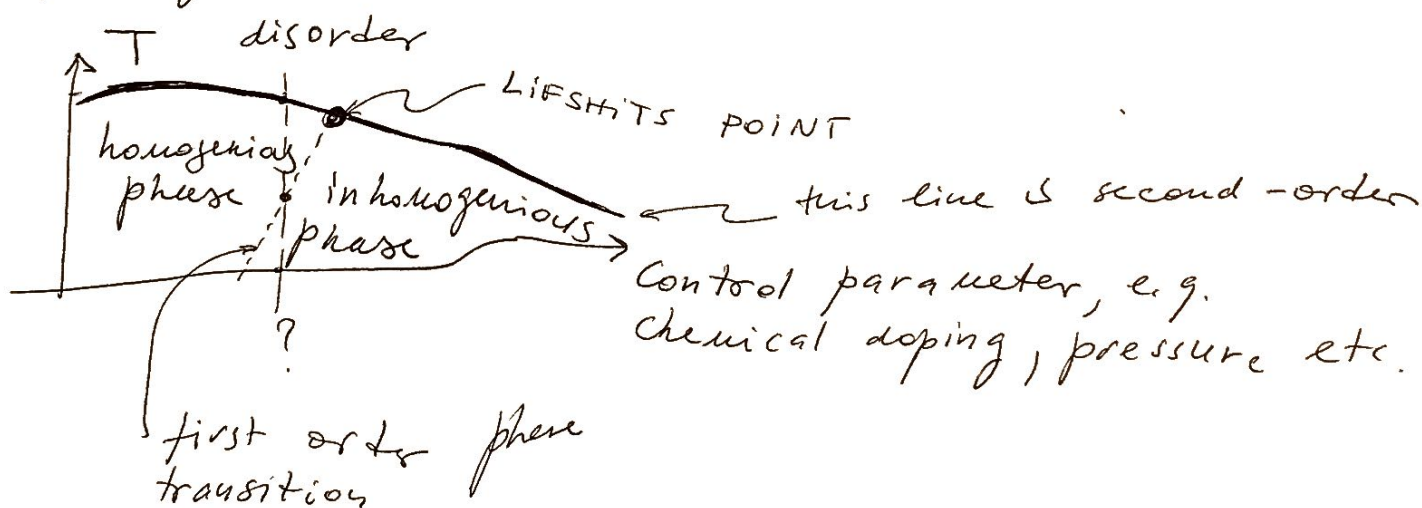 T disorder
LiFSHiTS POiNT
homogenious
phase
inhomogenious
phase
this line is second-order
Control parameter, e.g.
chemical doping, pressure etc.
?
first order phase
transition